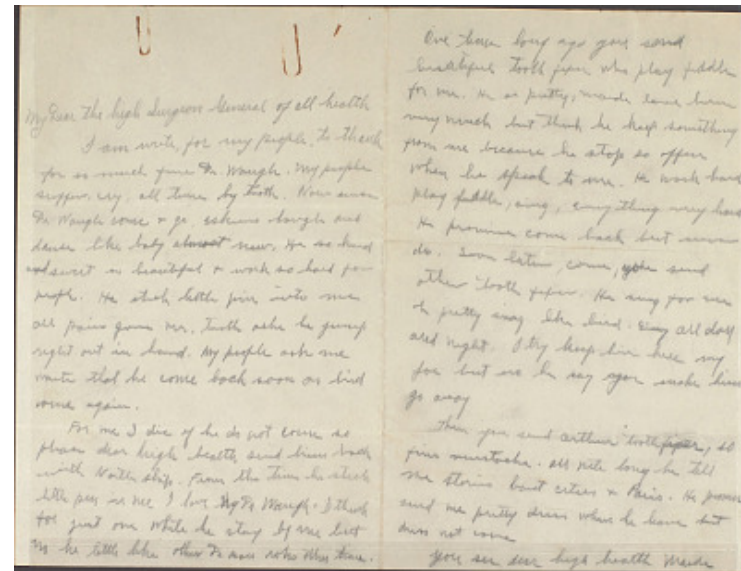 My Dear the high Surgeon General of all health
I am write, for my people, to thank
for so much fine Dr. Waugh. My people
suffer, cry, all time by tooth. Now since
Dr. Waugh come & go, eskimo laugh and
dance like baby almost new. He so kind
and sweet so beautiful & work so hard for
people. He stick little pin into me
all pain gone me. tooth ache he jump
right out in hand. My people ask me
write that he come back soon as bird
come again.
For me I die if he do not come so
please dear high health send him back
with North ship. From the time he stick
little pin in me I love My Dr Waugh. I think
for just one while he stay by me but
he little like other
One time long ago you send
beautiful tooth fixer who play fiddle
for me. He so pretty, make love him
very much but think he keep something
from me because he stop so often
when he speak to me. He work hard
play fiddle, sing, everything very hard
He promise come back but never
do. Soon later, come, you send
other tooth fixer. He sing for me
so pretty song like bird. Sing all day
and night. I try keep him here my
for but no he say you make him
go away
Then you send arthur tooth fixer, so
fine mustache. all nite long he tell
me stories bout cities & Paris. He promise
send me pretty dress when he leave but
dress not come
you see dear high health